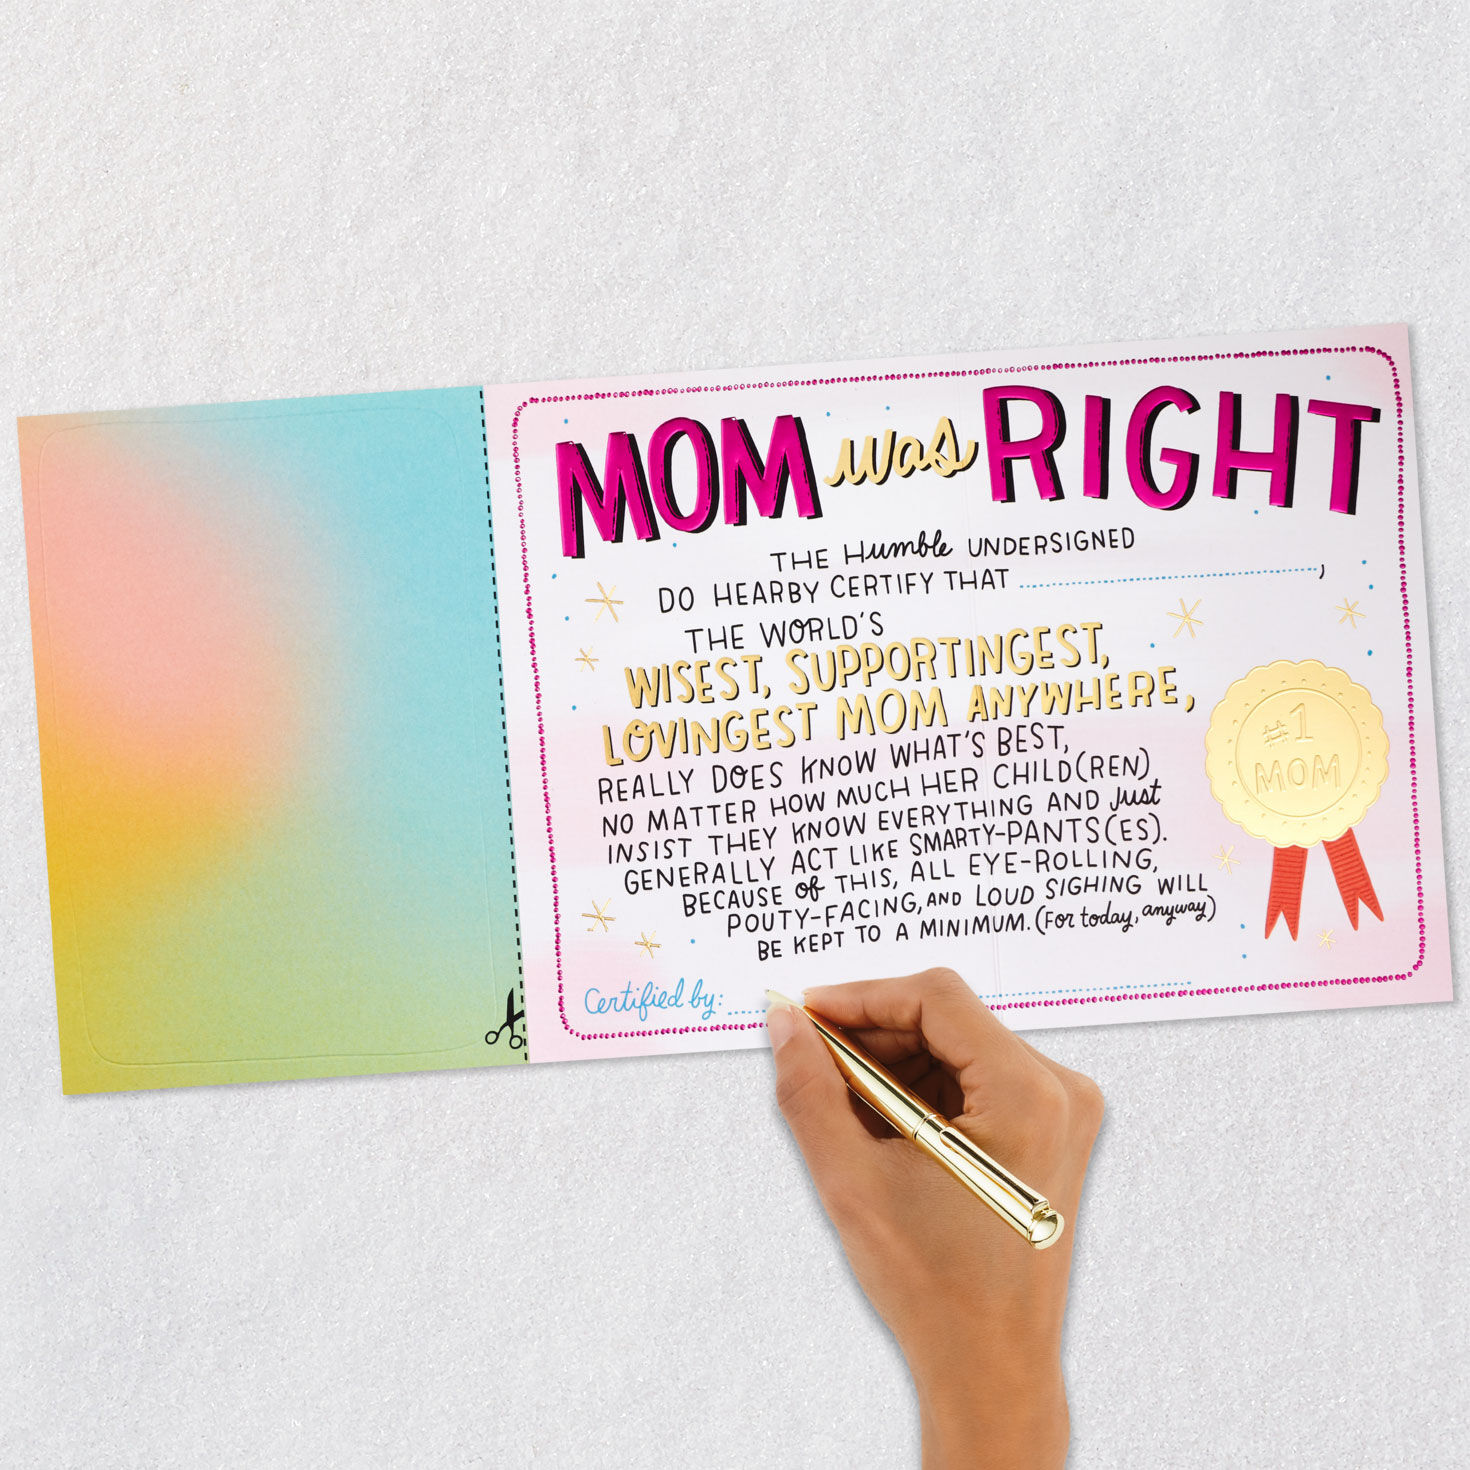 MOM was RIGHT
THE Humble UNDERSIGNED
DO HEARBY CERTIFY THAT ,
THE WORLD'S
WISEST, SUPPORTINGEST,
LOVINGEST MOM ANYWHERE,
REALLY DOES KNOW WHAT'S BEST,
NO MATTER HOW MUCH HER CHILD(REN)
INSIST THEY KNOW EVERYTHING AND Just
GENERALLY ACT LIKE SMARTY-PANTS(ES).
BECAUSE of THIS, ALL EYE-ROLLING,
POUTY-FACING, AND LOUD SIGHING WILL
BE KEPT TO A MINIMUM. (For today, anyway)
#1
MOM
Certified by: